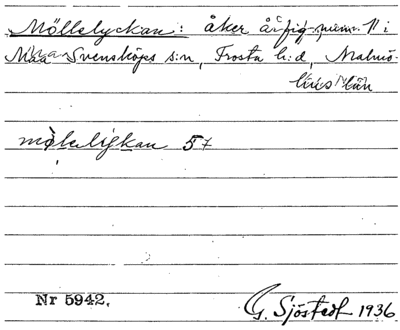 Möllelyckan: åker å fig.-num. 11 i
Svensköps s:n, Frosta h:d, Malmö-
hus län
mölelykan 57
Nr 5942.
G. Sjöstedt 1936